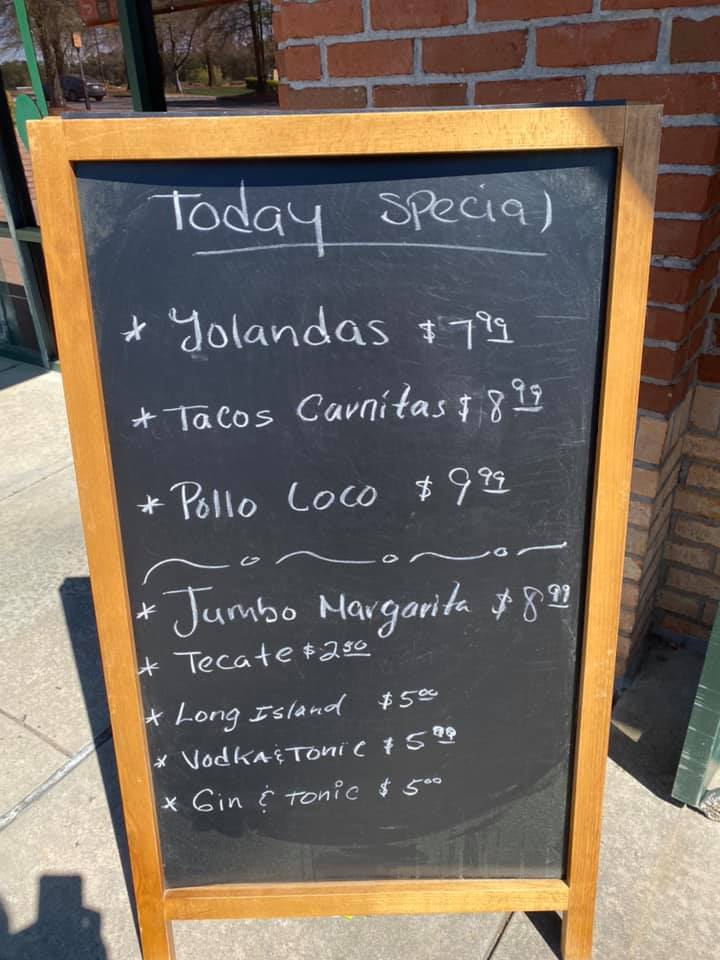 Today Special
* Yolandas $7.99
* Tacos Carnitas $8.99
* Pollo Loco $9.99
* Jumbo Margarita $8.99
* Tecate $2.50
* Long Island $5.00
* Vodka & Tonic $5.99
* Gin & Tonic $5.00